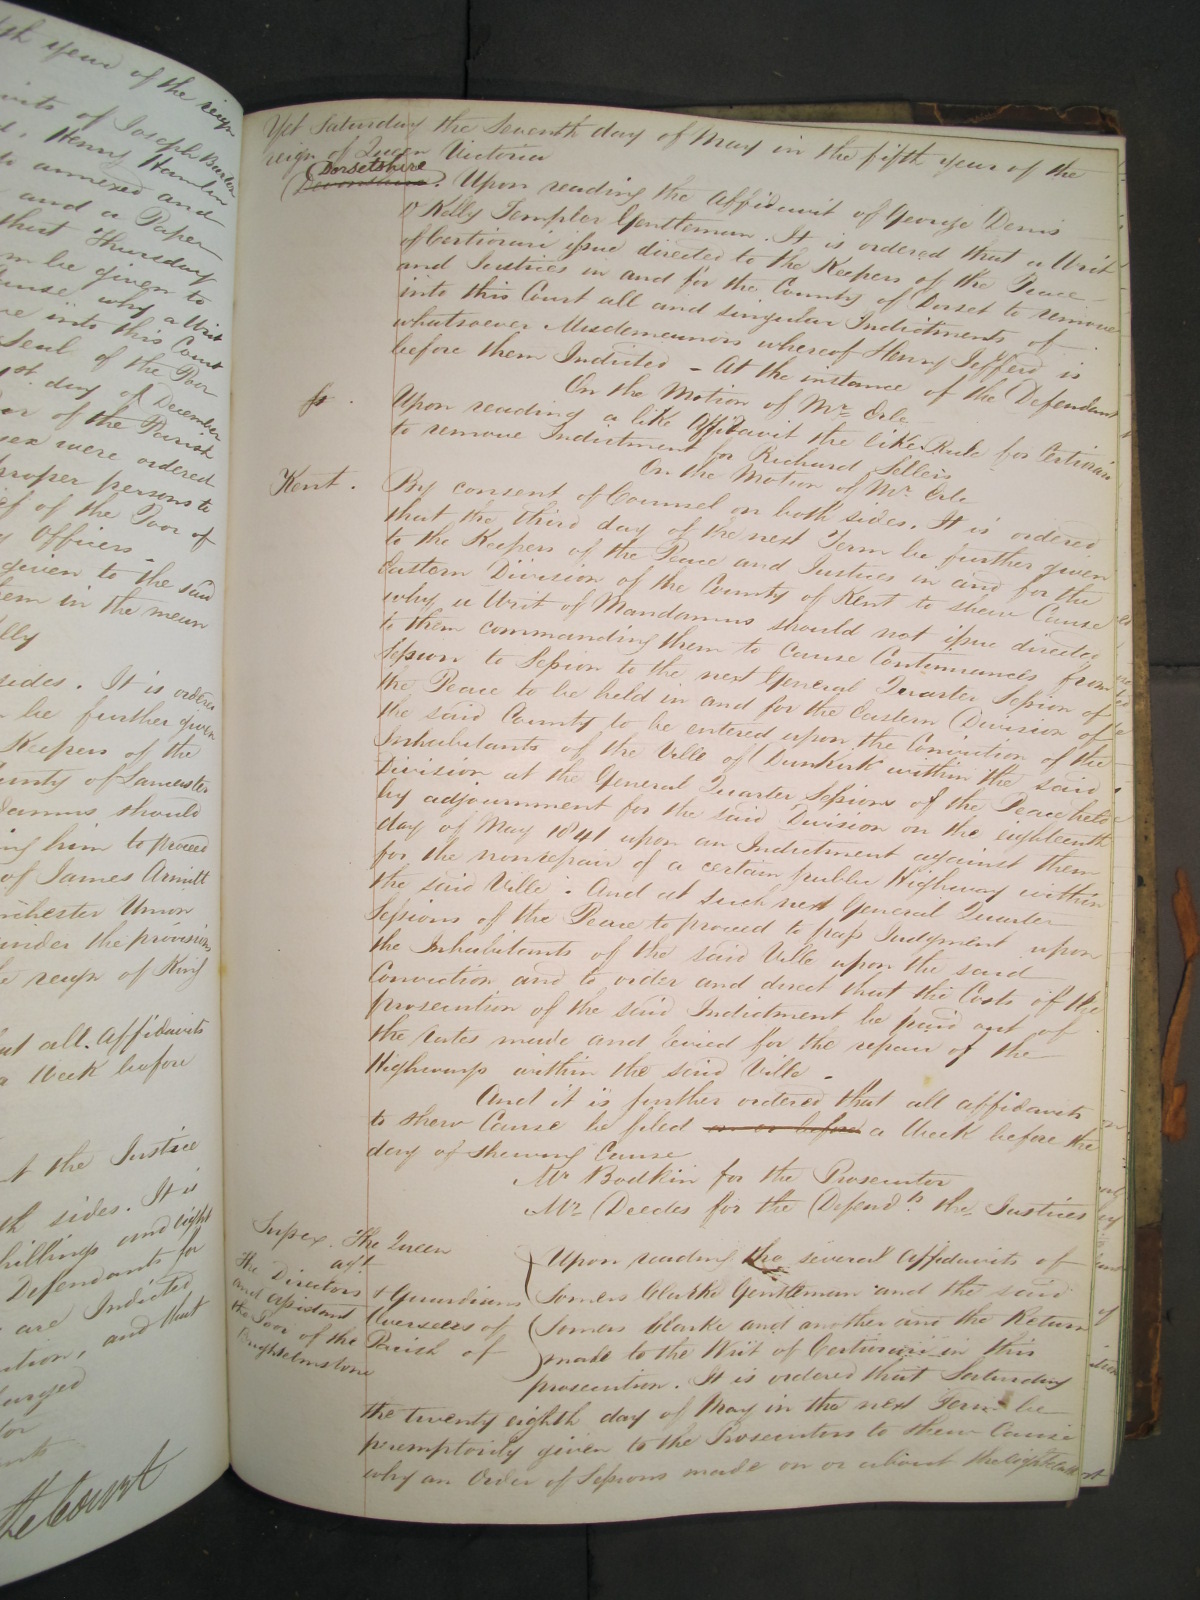 gth year of the reign
vits of Joseph Barton
d, Henry Hamlin
to annexed and
and a Paper
that Thursday
m be given to
ause why a Writ
re into this Court
Seal of the Poor
1st day of December
or of the Parish
sex were ordered
proper persons to
ef of the Poor of
y Officers
given to the said
em in the mean
lly
sides. It is ordered
be further given
Keepers of the
unty of Lancaster
damus should
ing him to proceed
of James Armitt
nchester Union
under the provisions
e reign of King
at all Affidavits
a Week before
t the Justice
th sides. It is
hillings and eight
Defendants for
are Indicted
ution, and that
arged
tor
the Court
Yet Saturday the Seventh day of May in the fifth year of the
reign of Queen Victoria
Dorsetshire
Devonshire. Upon reading the Affidavit of George Denis
O'Kelly Templer Gentleman. It is ordered that a Writ
of Certiorari issue directed to the Keepers of the Peace
and Justices in and for the County of Dorset to remove
into this Court all and singular Indictments of
whatsoever Misdemeanors whereof Henry Jefferd is
before them Indicted – At the instance of the Defendant
On the Motion of Mr. Erle
Upon reading a like Affidavit the like Rule for Certiorari
to remove Indictment for Richard Sellers
On the Motion of Mr. Erle
Kent. By consent of Counsel on both sides. It is ordered
that the third day of the next Term be further given
to the Keepers of the Peace and Justices in and for the
Eastern Division of the County of Kent to shew Cause
why a Writ of Mandamus should not issue directed
to them commanding them to Cause Continuances from
Session to Session to the next General Quarter Session of
the Peace to be held in and for the Eastern Division of
the said County to be entered upon the Conviction of the
Inhabitants of the Ville of Dunkirk within the said
Division at the General Quarter Sessions of the Peace held
by adjournment for the said Division on the eighteenth
day of May 1841 upon an Indictment against them
for the nonrepair of a certain public Highway within
the said Ville. And at such next General Quarter
Sessions of the Peace to proceed to pass Judgment upon
the Inhabitants of the said Ville upon the said
Conviction and to order and direct that the Costs of the
prosecution of the said Indictment be paid out of
the rates made and levied for the repair of the
Highways within the said Ville –
And it is further ordered that all affidavits
to shew Cause be filed on or before a Week before the
day of shewing Cause
Mr Bodkin for the Prosecutor
Mr. Deedes for the Defendts the Justices
Sussex. The Queen
agt
The Directors & Guardians
and Assistant Overseers of
the Poor of the Parish of
Brighthelmstone
Upon reading the several Affidavits of
Somers Clarke Gentleman and the said
Somers Clarke and another and the Return
made to the Writ of Certiorari in this
prosecution. It is ordered that Saturday
the twenty eighth day of May in the next Term be
peremptorily given to the Prosecutors to shew Cause
why an Order of Sessions made on or about the eighteenth